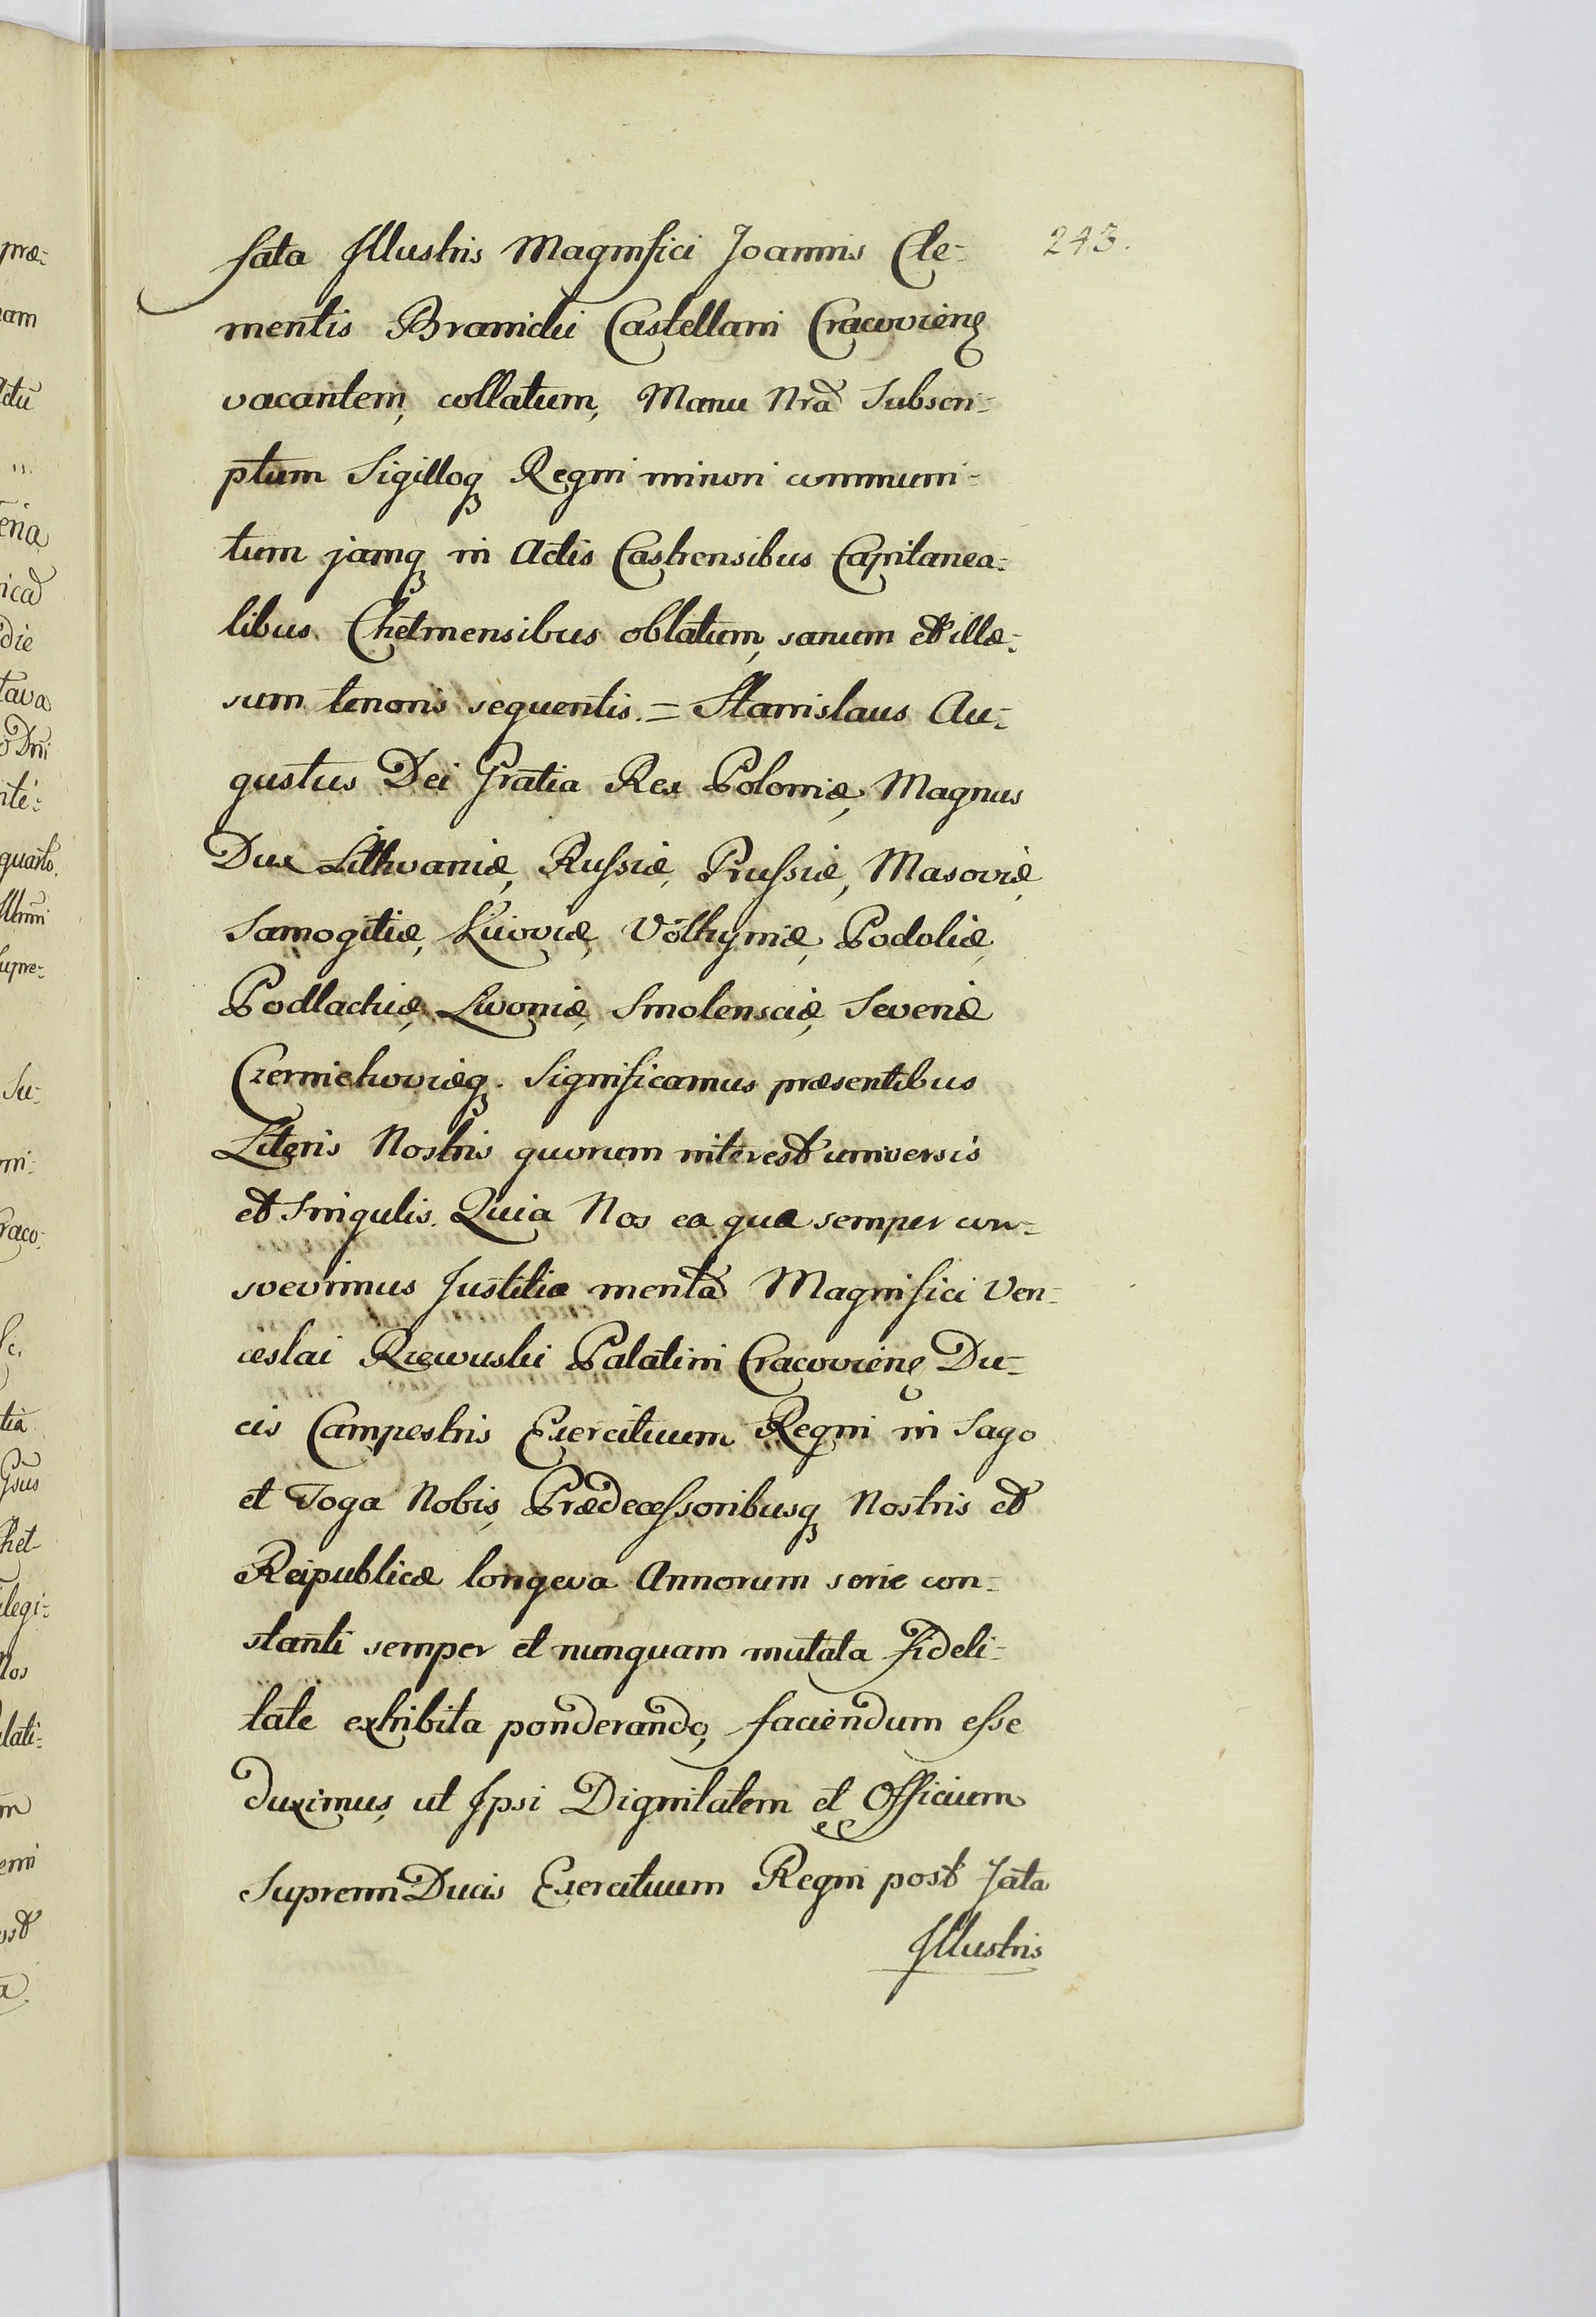 243.
fata Illustris Magnifici Joannis Cle-
mentis Branicki Castellani Cracovienς
vacantem, collatum, Manu Nrã Subscri-
ptum Sigilloqꝫ Regni minori communi-
tum jamqꝫ in Actis Castrensibus Capitanea-
libus Chełmensibus oblatum, sanum et illæ-
sum tenoris sequentis. = Stanislaus Au-
gustus Dei Gratia Rex Poloniæ, Magnus
Dux Lithvaniæ, Russiæ, Prussiæ, Masoviæ,
Samogitiæ, Kiioviæ, Volhyniæ, Podoliæ,
Podlachiæ, Livoniæ, Smolensciæ, Severiæ
Czerniehoviæqꝫ. Significamus præsentibus
Literis Nostris quorum interest universis
et Singulis. Quia Nos ea qua semper con-
svevimus Justitia merita Magnifici Ven-
ceslai Rzewuski Palatini Cracovienς Du-
cis Campestris Exercituum Regni in Sago
et Toga Nobis, Prædecessoribusqꝫ Nostris et
Reipublicæ longeva Annorum serie con-
stanti semper et nunquam mutata Fideli-
tate exhibita ponderando, faciendum esse
duximus, ut Ipsi Dignitatem et Officium
Supremi Ducis Exercituum Regni post fata
Illustris